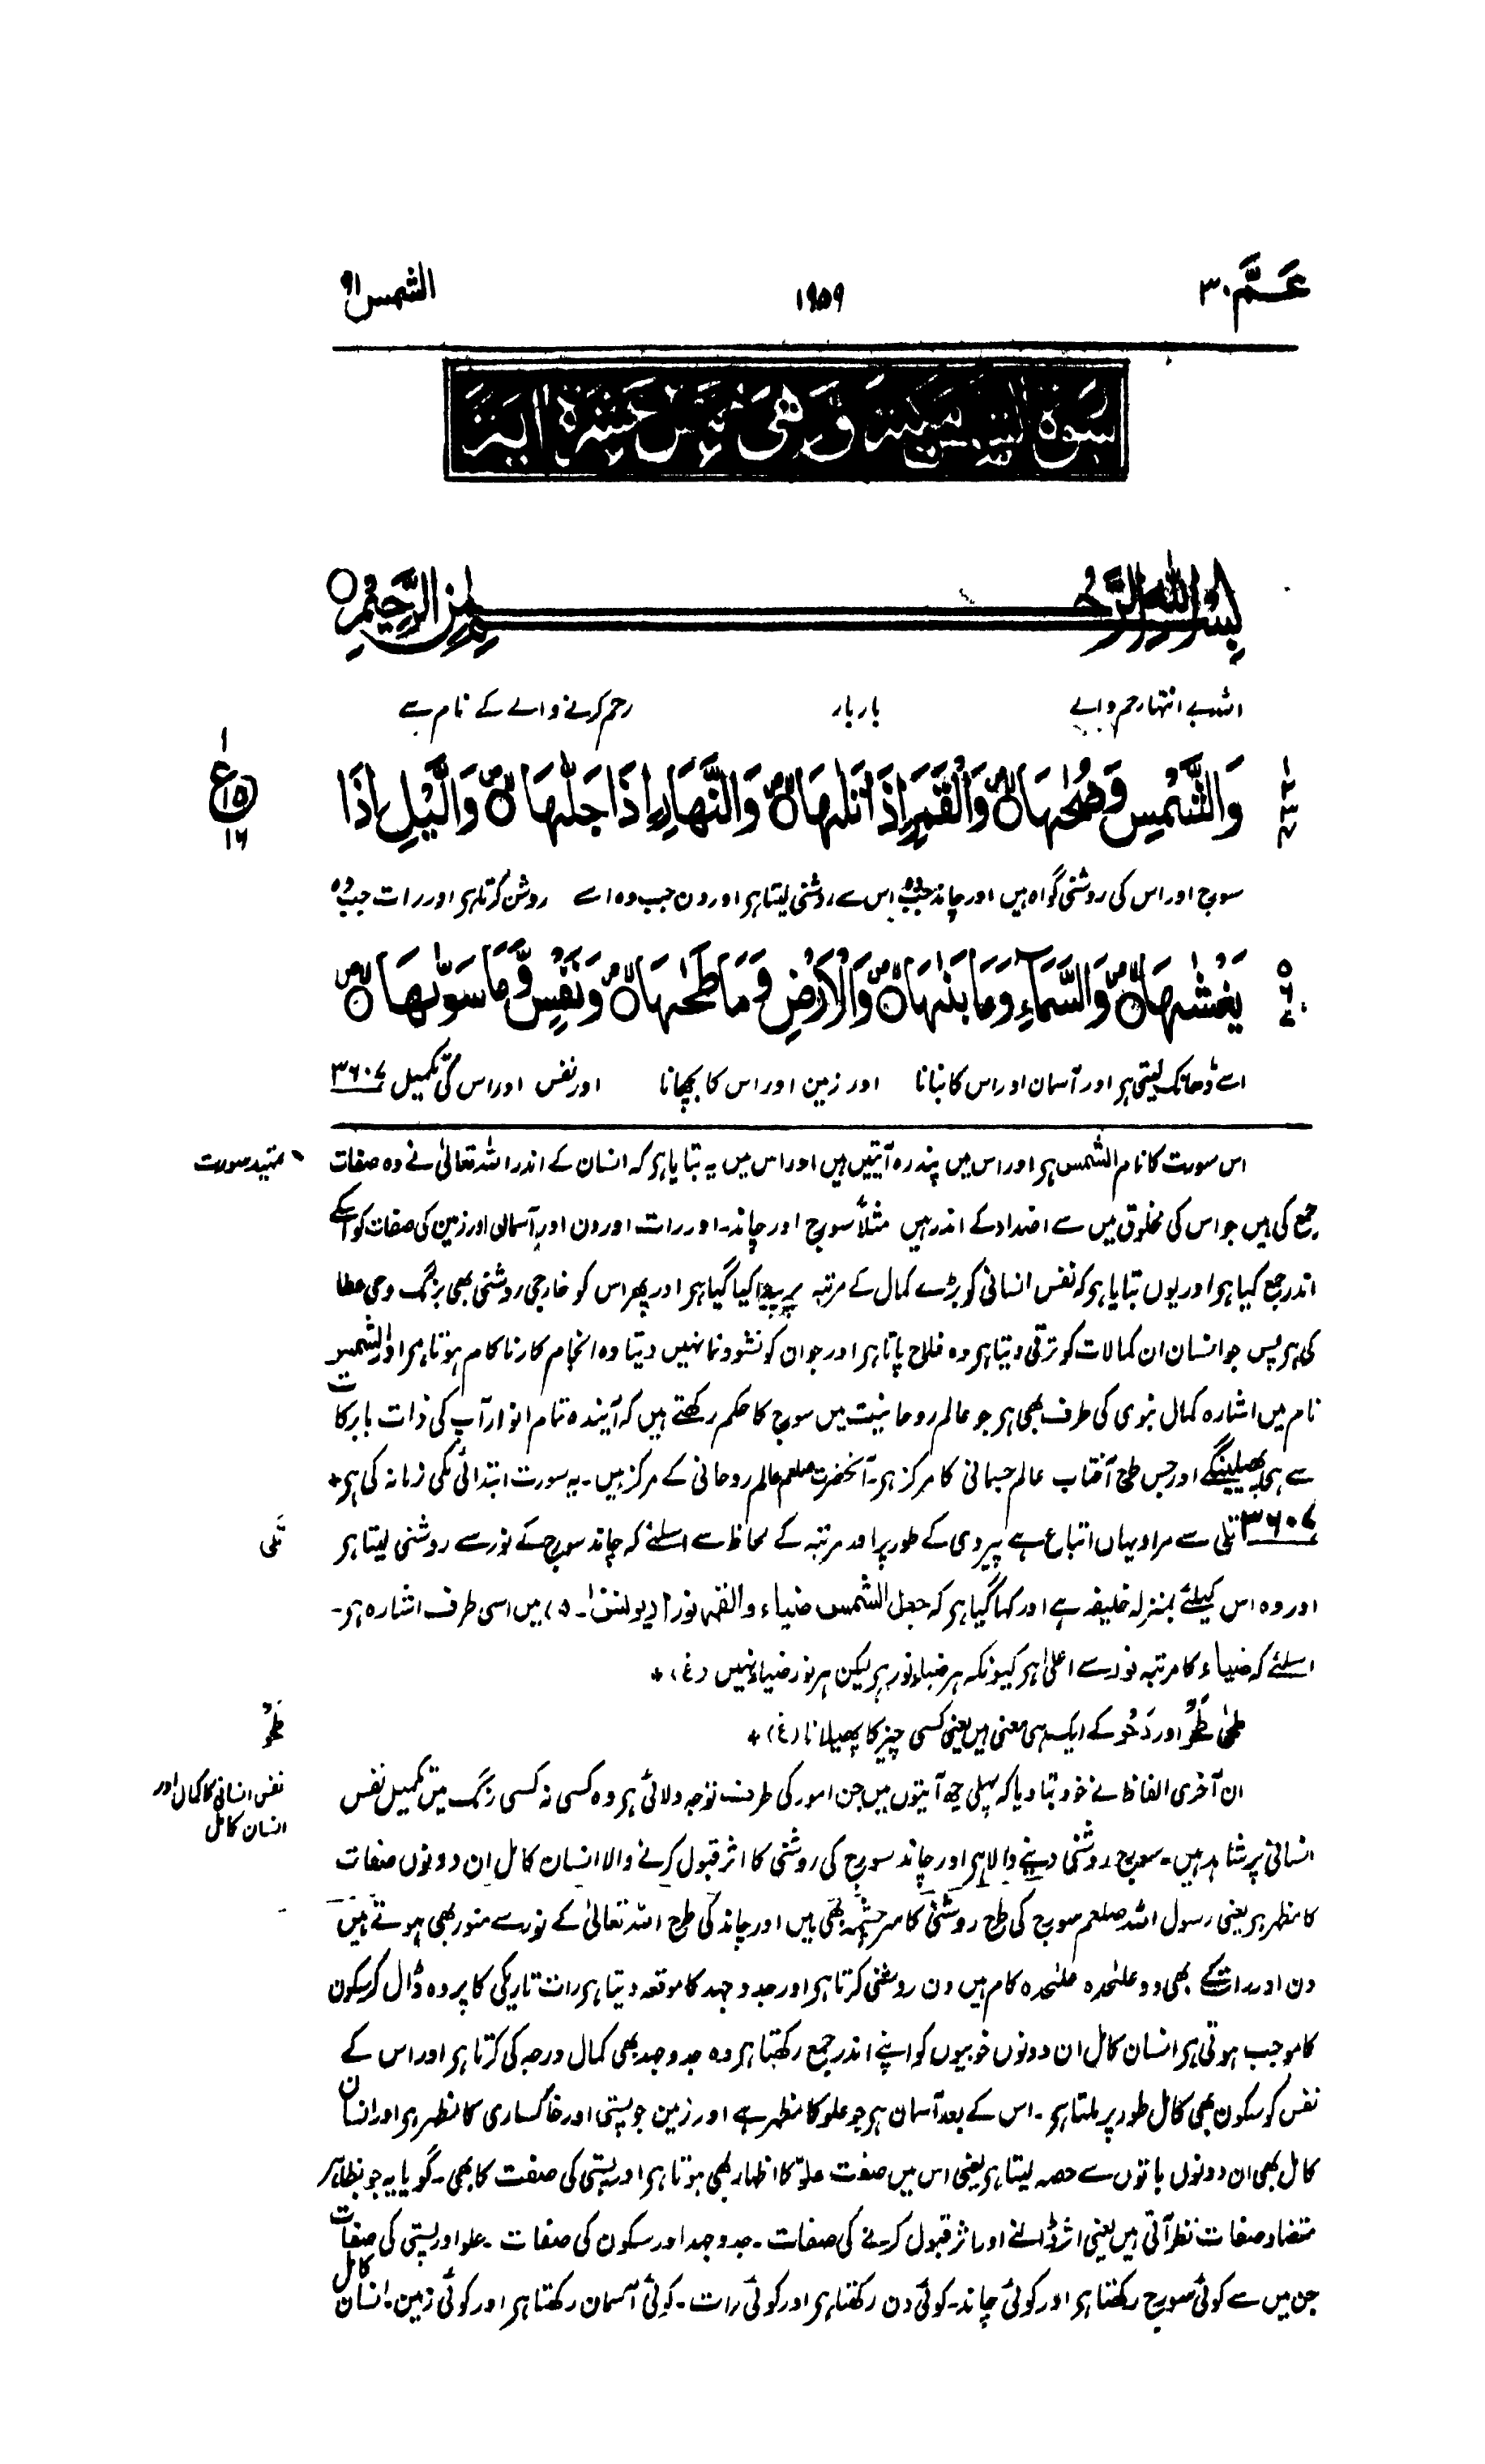 عَمَّ ۳۰
۱۹۵۹
الشمس ۹۱
سورة الشمس مكية وهي خمس عشرة اية
بِسْمِ اللهِ الرَّحْمٰنِ الرَّحِيْمِ ○
اللہ بے انتہا رحم والے بار بار رحم کرنے والے کے نام سے
وَالشَّمْسِ وَضُحٰىهَا ۝ وَالْقَمَرِ اِذَا تَلٰىهَا ۝ وَالنَّهَارِ اِذَا جَلّٰىهَا ۝ وَالَّيْلِ اِذَا
ع ۱ ۱۵ ۱۶
سورج اور اس کی روشنی گواہ ہیں اور چاند جب وہ اس سے روشنی لیتا ہو اور دن جب وہ اسے روشن کرتا ہو اور رات جب وہ
يَغْشٰىهَا ۝ وَالسَّمَآءِ وَمَا بَنٰىهَا ۝ وَالْاَرْضِ وَمَا طَحٰىهَا ۝ وَنَفْسٍ وَّمَا سَوّٰىهَا ۝
اسے ڈھانک لیتی ہو اور آسمان اور اس کا بنانا اور زمین اور اس کا بچھانا اور نفس اور اس کی تکمیل ۳۶۰۷
تمہید سورت
اس سورت کا نام الشمس ہو اور اس میں پندرہ آیتیں ہیں اور اس میں یہ بتایا ہو کہ انسان کے اندر اللہ تعالیٰ نے وہ صفات
جمع کی ہیں جو اس کی مخلوق میں سے اضداد کے اندر ہیں مثلاً سورج اور چاند۔ اور رات اور دن اور آسمان اور زمین کی صفات کو اسکے
اندر جمع کیا ہو اور یوں بتایا ہو کہ نفس انسانی کو بڑے کمال کے مرتبہ پر پیدا کیا گیا ہو اور پھر اس کو خارجی روشنی بھی برنگ وحی عطا
کی ہو پس جو انسان ان کمالات کو ترقی دیتا ہو وہ فلاح پاتا ہو اور جو ان کو نشوونما نہیں دیتا وہ انجام کار ناکام ہوتا ہو اور الشمس
نام میں اشارہ کمال نبوی کی طرف بھی ہو جو عالم روحانیت میں سورج کا حکم رکھتے ہیں کہ آیندہ تمام انوار آپ کی ذات بابرکات
سے ہی پھیلینگے اور جس طرح آفتاب عالم جسمانی کا مرکز ہو۔ آنحضرت صلعم عالم روحانی کے مرکز ہیں۔ یہ سورت ابتدائی مکی زمانہ کی ہو+
تَلٰی
۳۶۰۷ تلٰی سے مراد یہاں اتباع ہے پیروی کے طور پر اور مرتبہ کے لحاظ سے اسلئے کہ چاند سورج کے نور سے روشنی لیتا ہو
اور وہ اس کیلئے بمنزلہ خلیفہ ہے اور کہا گیا ہو کہ جعل الشمس ضیاء والقمر نورا (یونسؑ ۔ ۵) میں اسی طرف اشارہ ہو۔
اسلئے کہ ضیاء کا مرتبہ نور سے اعلیٰ ہو کیونکہ ہر ضیاء نور ہو لیکن ہر نور ضیاء نہیں (غ)+
طَحْو
طحٰی طَحْوٌ اور دَحْوٌ کے ایک ہی معنی ہیں یعنی کسی چیز کا پھیلانا (غ)+
نفس انسانی کا کمال اور
انسان کامل
ان آخری الفاظ نے خود بتا دیا کہ پہلی چھ آیتوں میں جن امور کی طرف توجہ دلائی ہو وہ کسی نہ کسی رنگ میں تکمیل نفس
انسانی پر شاہد ہیں۔ سورج روشنی دینے والا ہو اور چاند سورج کی روشنی کا اثر قبول کرنے والا انسان کامل ان دونوں صفات
کا مظہر ہو یعنی رسول اللہ صلعم سورج کی طرح روشنی کا سرچشمہ بھی ہیں اور چاند کی طرح اللہ تعالیٰ کے نور سے منور بھی ہوتے ہیں
دن اور رات کے بھی دو علٰحدہ علٰحدہ کام ہیں دن روشنی کرتا ہو اور جدوجہد کا موقعہ دیتا ہو رات تاریکی کا پردہ ڈال کر سکون
کا موجب ہوتی ہو انسان کامل ان دونوں خوبیوں کو اپنے اندر جمع رکھتا ہو وہ جدوجہد بھی کمال درجہ کی کرتا ہو اور اس کے
نفس کو سکون بھی کامل طور پر ملتا ہو۔ اس کے بعد آسمان ہو جو علو کا مظہر ہے اور زمین جو پستی اور خاکساری کا مظہر ہو اور انسان
کامل بھی ان دونوں باتوں سے حصہ لیتا ہو یعنی اس میں صفت علوّ کا اظہار بھی ہوتا ہو اور پستی کی صفت کا بھی۔ گویا یہ جو بظاہر
متضاد صفات نظر آتی ہیں یعنی اثر ڈالنے اور اثر قبول کرنے کی صفات۔ جدوجہد اور سکون کی صفات۔ علو اور پستی کی صفات
جن میں سے کوئی سورج رکھتا ہو اور کوئی چاند۔ کوئی دن رکھتا ہو اور کوئی رات۔ کوئی آسمان رکھتا ہو اور کوئی زمین۔ انسان کامل